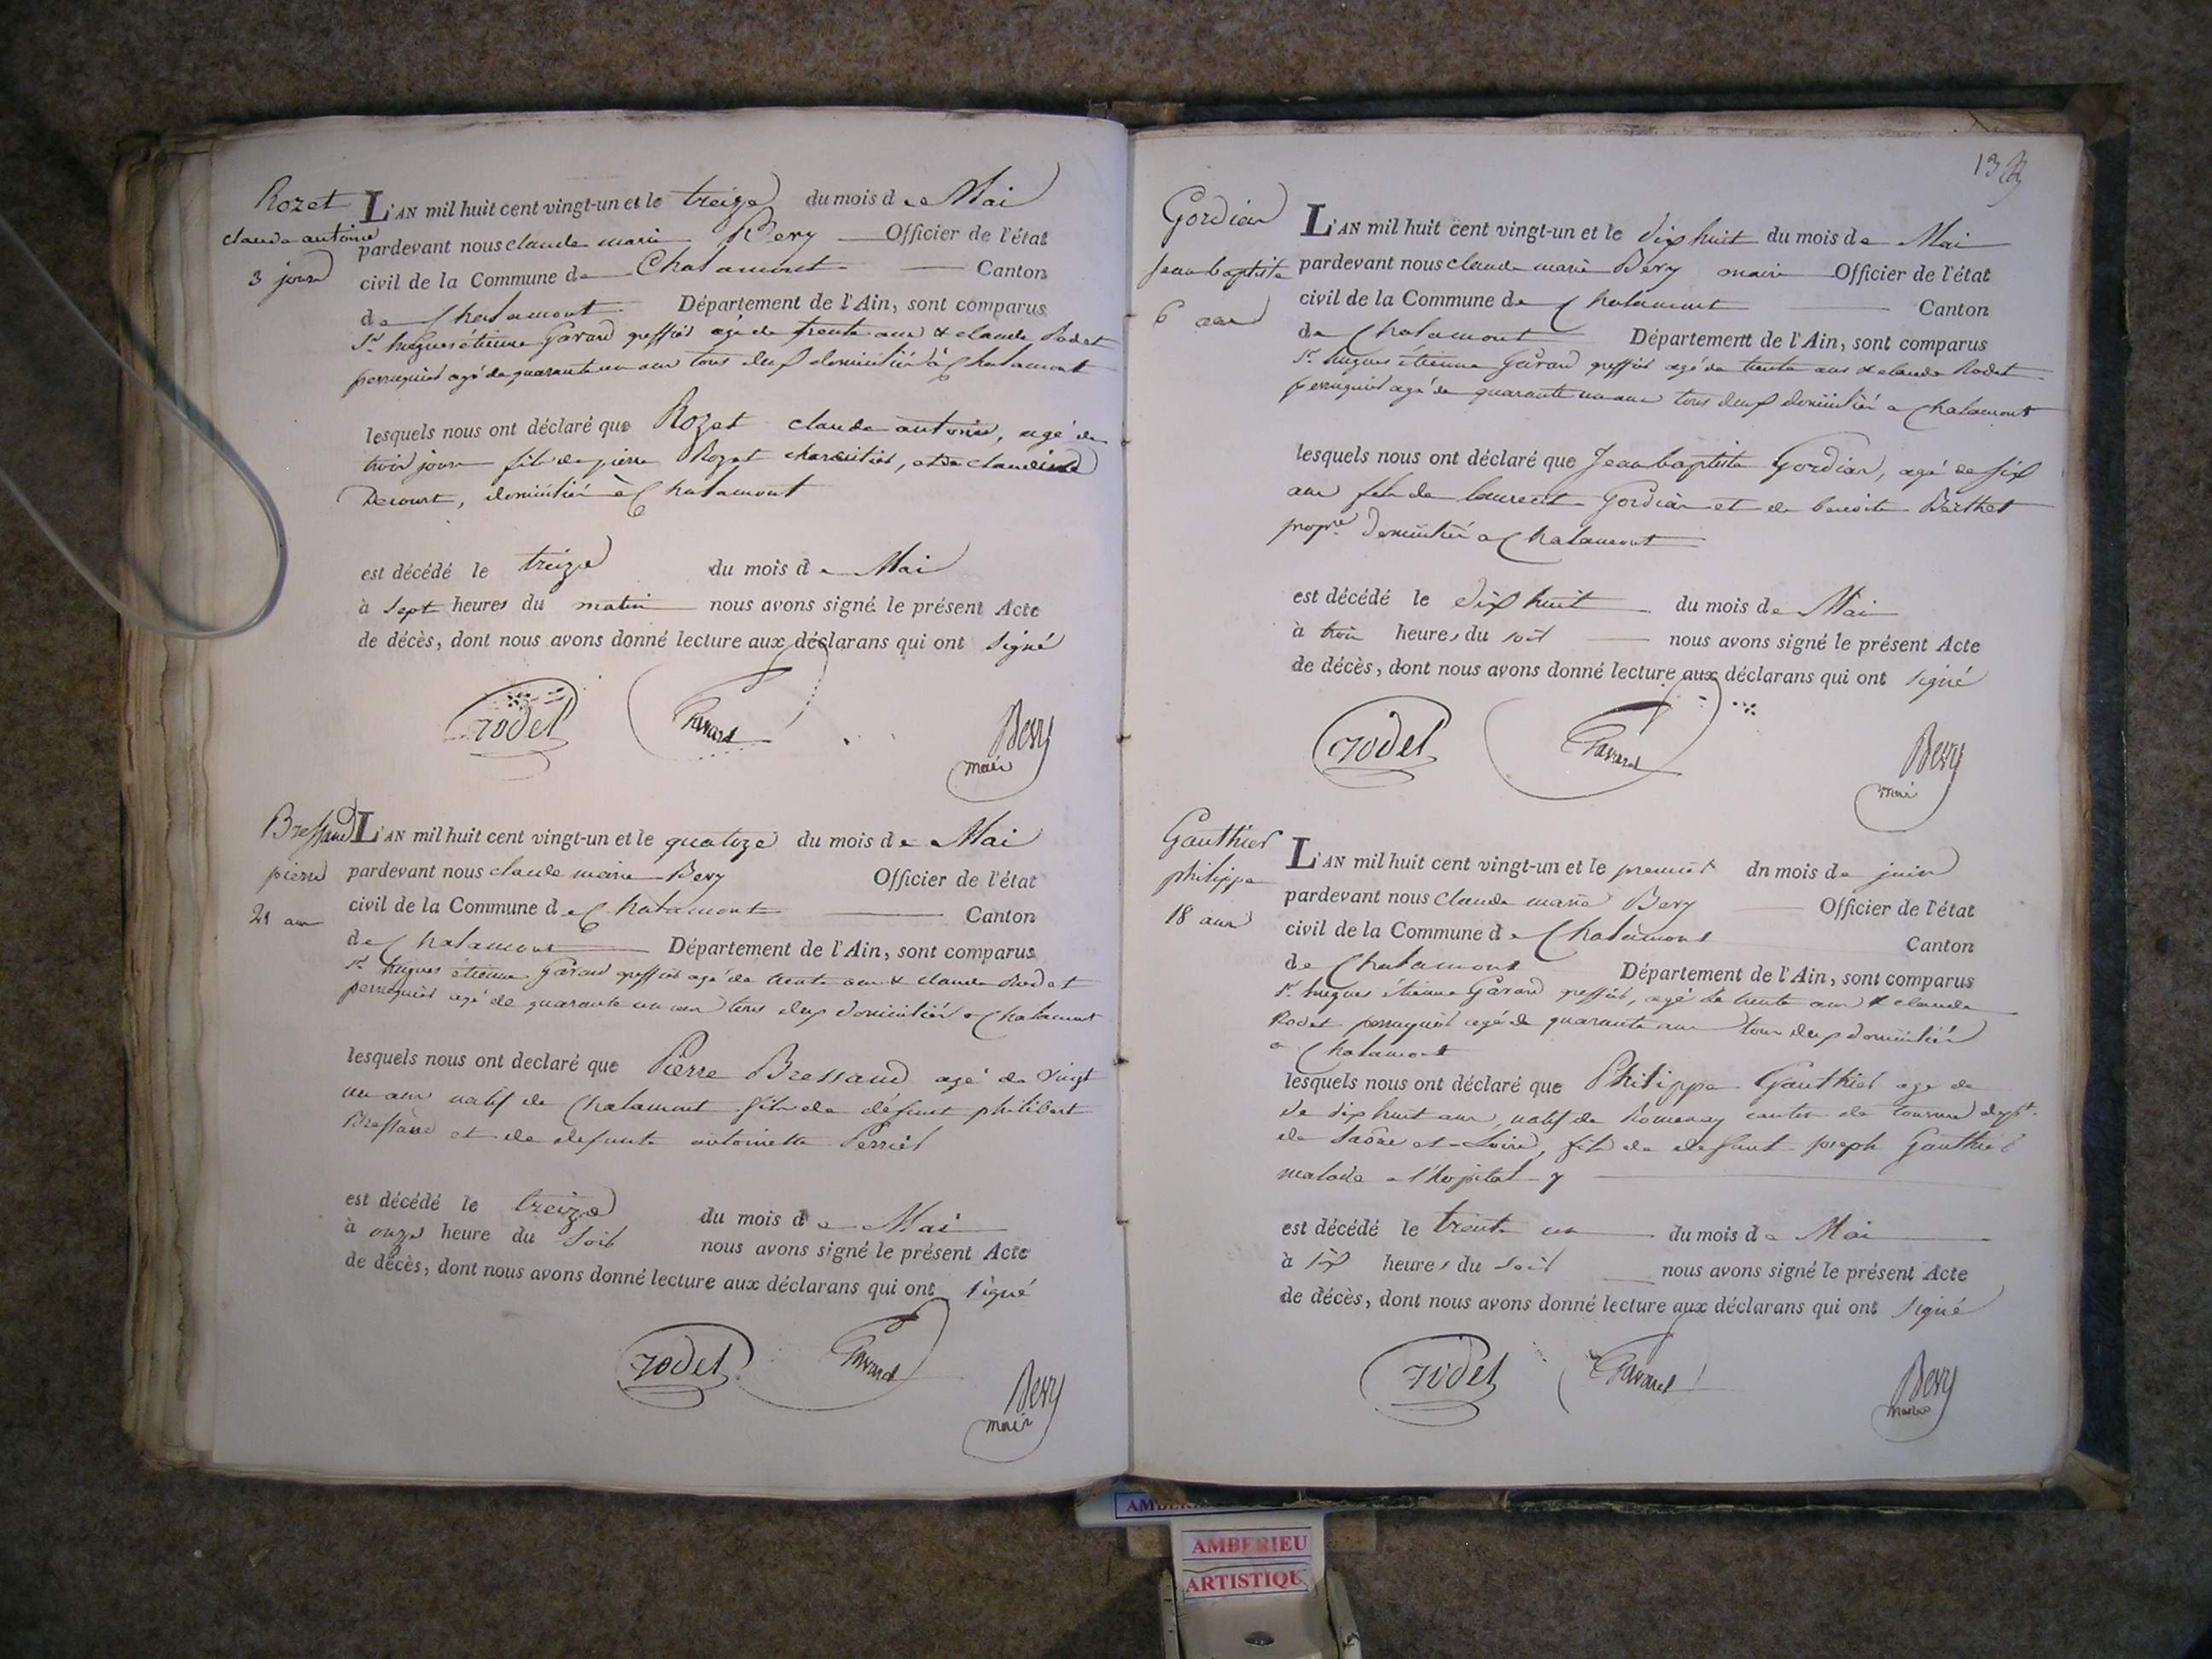 Rozet
claude antoine
3 jours
L'AN mil huit cent vingt-un et le treize du mois de Mai
pardevant nous claude marie Bevy Officier de l'état
civil de la Commune de Chalamont Canton
de Chalamont Département de l'Ain, sont comparus
Sr. hugues étienne Gavard greffier agé de trente ans & claude Rodet
perruquier agé de quarante un ans tous deux domiciliés à Chalamont
lesquels nous ont déclaré que Rozet claude antoine, agé de
trois jours fils de pierre Rozet charcutier, et de claudine
Decourt, domiciliés à Chalamont
est décédé le treize du mois de Mai
à sept heures du matin nous avons signé le présent Acte
de décès, dont nous avons donné lecture aux déclarans qui ont signé
rodet Gavard Bevy
maire
Bressand
pierre
21 ans
L'AN mil huit cent vingt-un et le quatorze du mois de Mai
pardevant nous claude marie Bevy Officier de l'état
civil de la Commune de Chalamont Canton
de Chalamont Département de l'Ain, sont comparus
Sr. hugues étienne Gavard greffier agé de trente ans & claude Rodet
perruquier agé de quarante un ans tous deux domiciliés a Chalamont
lesquels nous ont declaré que Pierre Bressand agé de vingt
un ans natif de Chalamont fils de défunt philibert
Bressand et de defunte antoinette Perrier
est décédé le treize du mois de Mai
à onze heure du soir nous avons signé le présent Acte
de décès, dont nous avons donné lecture aux déclarans qui ont signé
rodet Gavard Bevy
maire
13
Gordian
Jean baptiste
6 ans
L'AN mil huit cent vingt-un et le dix huit du mois de Mai
pardevant nous claude marie Bevy maire Officier de l'état
civil de la Commune de Chalamont Canton
de Chalamont Département de l'Ain, sont comparus
Sr. hugues étienne Gavard greffier agé de trente ans & claude Rodet
perruquier agé de quarante un ans tous deux domiciliés a Chalamont
lesquels nous ont déclaré que Jean baptiste Gordian, agé de six
ans fils de laurent Gordian et de benoite Berthet
propre. domiciliés a Chalamont
est décédé le dix huit du mois de Mai
à trois heures du soir nous avons signé le présent Acte
de décès, dont nous avons donné lecture aux déclarans qui ont signé
rodet Gavard Bevy
maire
Gauthier
philippe
18 ans
L'AN mil huit cent vingt-un et le premier dn mois de juin
pardevant nous claude marie Bevy Officier de l'état
civil de la Commune de Chalamont Canton
de Chalamont Département de l'Ain, sont comparus
Sr. hugues étienne Gavard greffier, agé de trente ans & claude
Rodet perruquier agé de quarante ans tous deux domiciliés
a Chalamont
lesquels nous ont déclaré que Philippe Gauthier age de
de dix huit ans, natif de Romenay canton de tournu dept.
de Saône et Loire, fils de defunt joseph Gauthier
malade a l'hopital
est décédé le trente un du mois de Mai
à six heures du soir nous avons signé le présent Acte
de décès, dont nous avons donné lecture aux déclarans qui ont signé
rodet Gavard Bevy
maire
AMBERIEU
ARTISTIQU